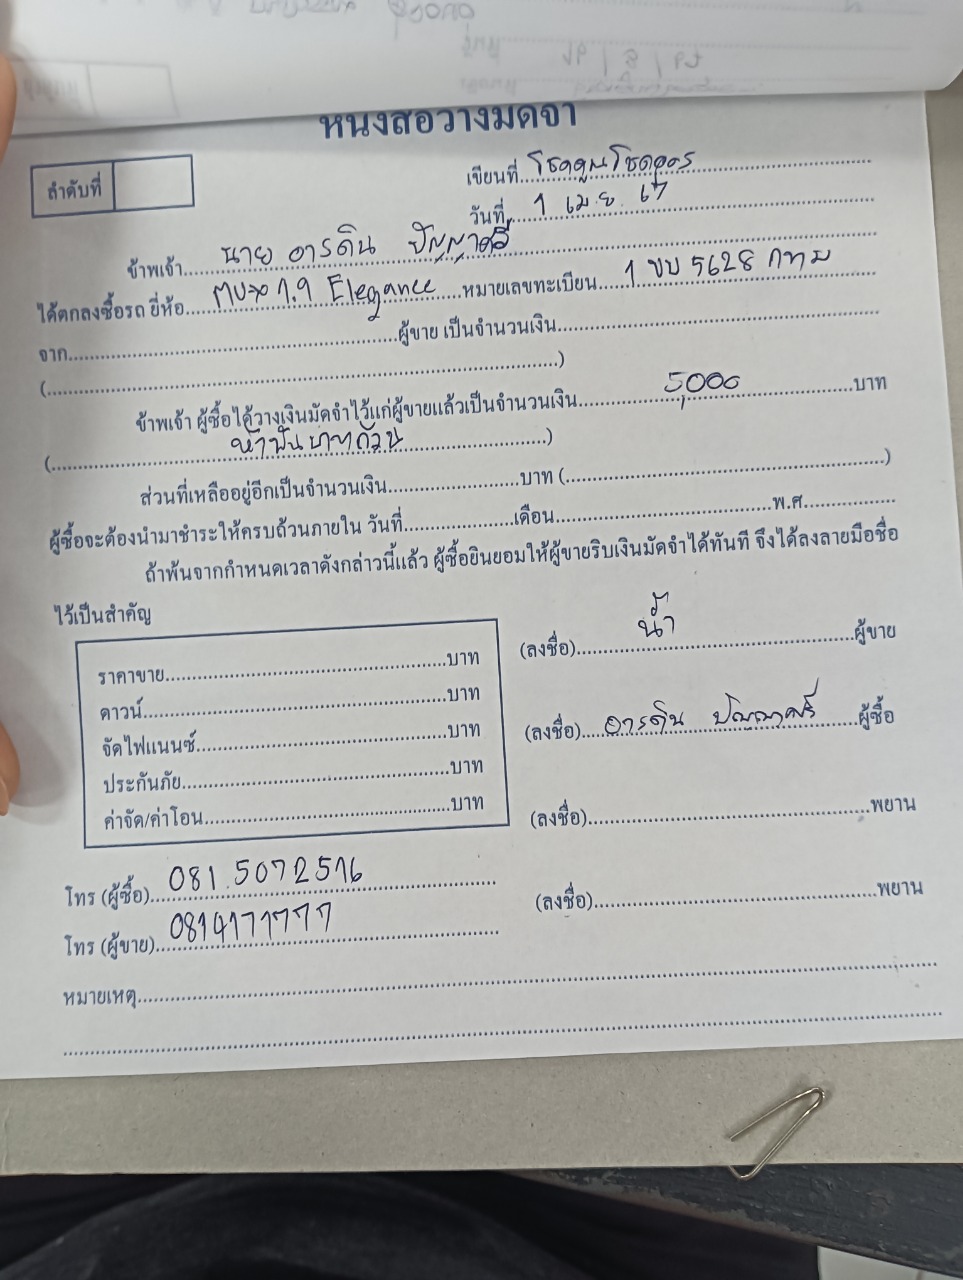 หนังสือวางมัดจำ
ลำดับที่
เขียนที่ โชคคูณโชค
วันที่ 1 เม.ย. 67
ข้าพเจ้า นาย อารดิน ปัญญาศรี
ได้ตกลงซื้อรถ ยี่ห้อ mux 1.9 Elegance หมายเลขทะเบียน 1 ขบ 5628 กทม
จาก ผู้ขาย เป็นจำนวนเงิน
( )
ข้าพเจ้า ผู้ซื้อได้วางเงินมัดจำไว้แก่ผู้ขายแล้วเป็นจำนวนเงิน 5,000 บาท
(ห้าพันบาทถ้วน)
ส่วนที่เหลืออยู่อีกเป็นจำนวนเงิน บาท ( )
ผู้ซื้อจะต้องนำมาชำระให้ครบถ้วนภายใน วันที่ เดือน พ.ศ.
ถ้าพ้นจากกำหนดเวลาดังกล่าวนี้แล้ว ผู้ซื้อยินยอมให้ผู้ขายริบเงินมัดจำได้ทันที จึงได้ลงลายมือชื่อ
ไว้เป็นสำคัญ
ราคาขาย บาท
ดาวน์ บาท
จัดไฟแนนซ์ บาท
ประกันภัย บาท
ค่าจัด/ค่าโอน บาท
(ลงชื่อ) น้ำ ผู้ขาย
(ลงชื่อ) อารดิน ปัญญาศรี ผู้ซื้อ
(ลงชื่อ) พยาน
(ลงชื่อ) พยาน
โทร (ผู้ซื้อ) 081.5072516
โทร (ผู้ขาย) 0814171777
หมายเหตุ